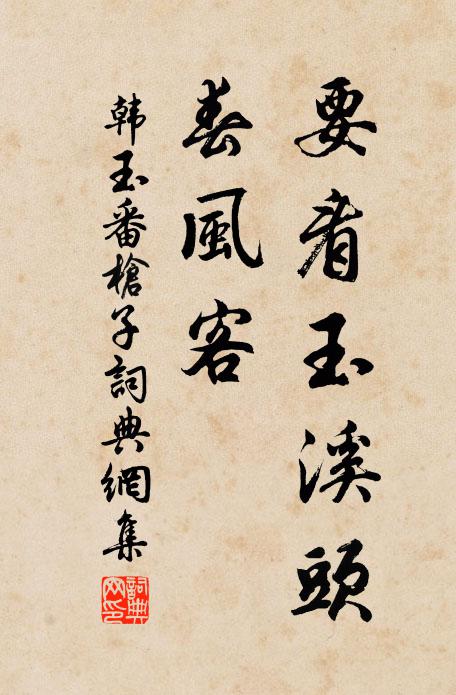 要看玉溪頭
春風客
韩玉番槍子詞典網集
詞典网印